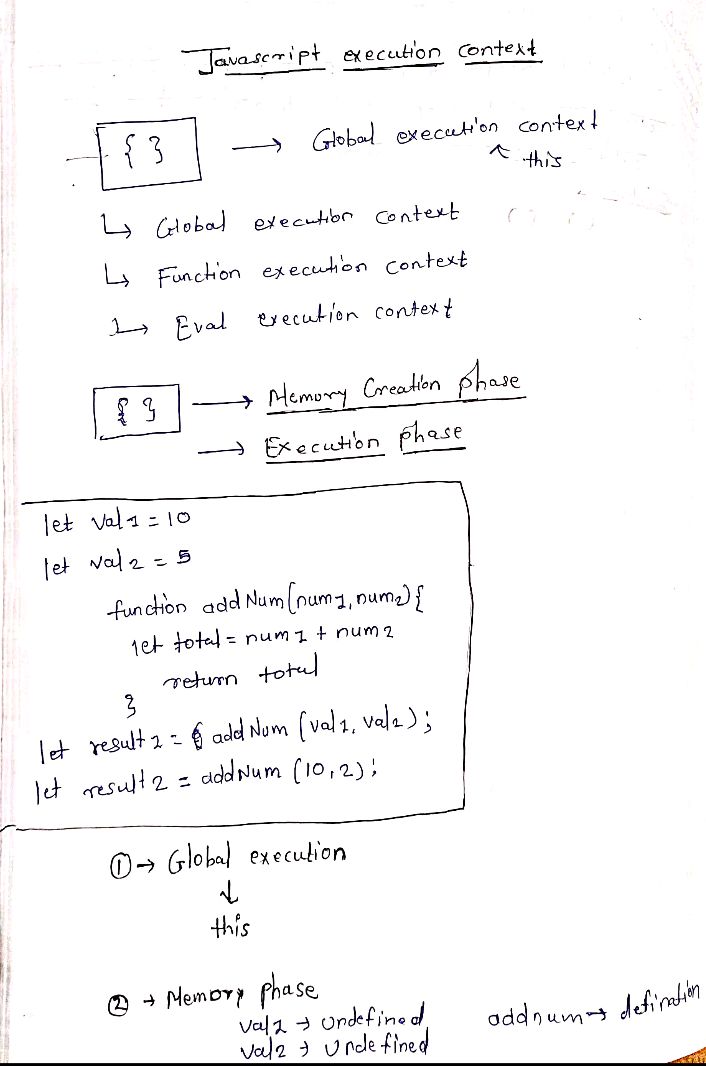 Javascript execution context
{ } → Global execution context
↖ this
↳ Global execution context
↳ Function execution context
↳ Eval execution context
{ } → Memory Creation phase
→ Execution phase
let val1 = 10
let val2 = 5
function addNum(num1, num2){
let total = num1 + num2
return total
}
let result1 = addNum (val1, val2);
let result2 = addNum (10, 2);
① → Global execution
↓
this
② → Memory phase
val1 → undefined
addnum → defination
val2 → undefined